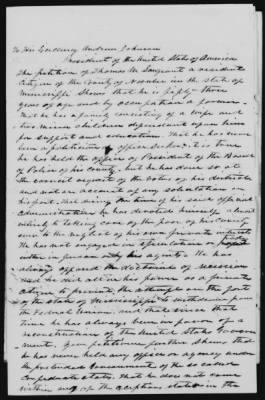 To His Excellency Andrew Johnson
President of the United States of America
The petition of Thomas M. a resident
citizen of the County of Noxubee in the State of
Mississippi Shows that he is fifty three
years of age and by occupation a farmer.
That he has a family consisting of a wife and
children dependent upon him
for support and education. That he has never
been a politician or office seeker, it is true
he has held the office of President of the Board
of Police of his county, but he has done so at
the earnest request of the voters of his district
and not on account of any solicitation on
his part. That during the time of his said official
administration he devoted himself
to taking care of the poor of his county
even to the neglect of his own private interests
He has not engaged in speculation or
either in person or by his agents. He has
always opposed the doctrine of secession
and he did all in his power as a private
citizen to prevent the attempt on the part
of the State of Mississippi to withdraw from
the Federal Union, and that since that
time he has always been in favor of a
reconstruction of the United States Govern
ment. Your petitioner further shows that
he has never held any office or agency under
the pretended Government of the so called
Confederate States, that he does not come
within any of the exceptions stated in the